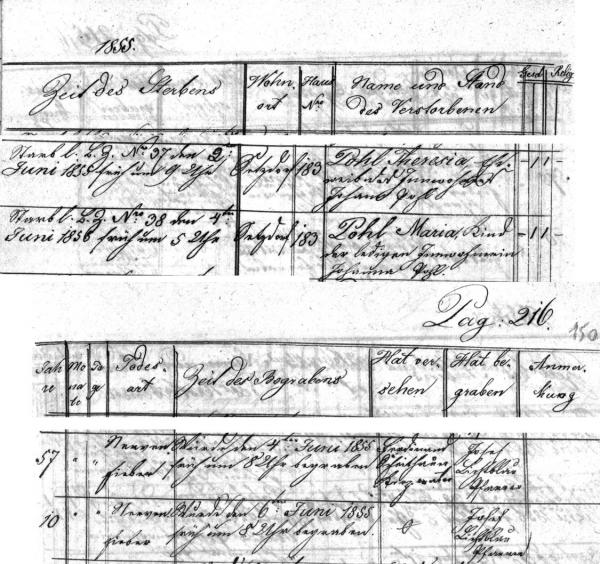 1855.
Zeit des Sterbens
Wohn,
ort
Haus
Nro
Name und Stand
des Verstorbenen
Gesch
Relig
Starb l. B. Z. Nro 37 den 2ten
Juni 1855 früh um 9 Uhr
Setzdorf
183
Pohl Theresia,
weib des Innwohners
Johann Pohl
- 1 1 -
Starb l. B. Z. Nro 38 den 4ten
Juni 1856 früh um 5 Uhr
Setzdorf
183
Pohl Maria, Kind
der ledigen Innwohnerin
Johanna Pohl.
- 1 1 -
Pag: 216.
150
Jah
re
Mo
na
te
Ta
ge
Todes-
art
Zeit des Begrabens
Hat ver-
sehen
Hat be-
graben
Anmer-
kung
57 " "
Nerven
fieber
Wurde den 4ten Juni 1855
früh um 8 Uhr begraben
Ferdinand
Kooperator
Josef
Lichtblau
Pfarrer
10 " "
Nerven
fieber
Wurde den 6ten Juni 1855
früh um 8 Uhr begraben.
0
Josef
Lichtblau
Pfarrer